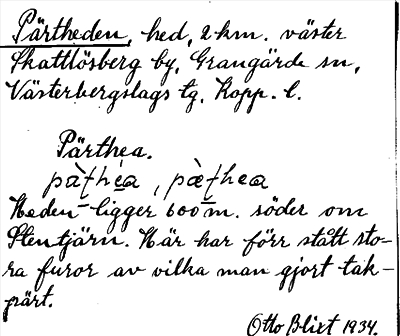 Pärtheden, hed, 2 km. väster
Skattlösberg by, Grangärde sn,
Västerbergslags tg. Kopp. l.
Pärthea.
Heden ligger 600 m. söder om
Stentjärn. Här har förr stått sto-
ra furor av vilka man gjort tak-
pärt.
Otto Blixt 1934.